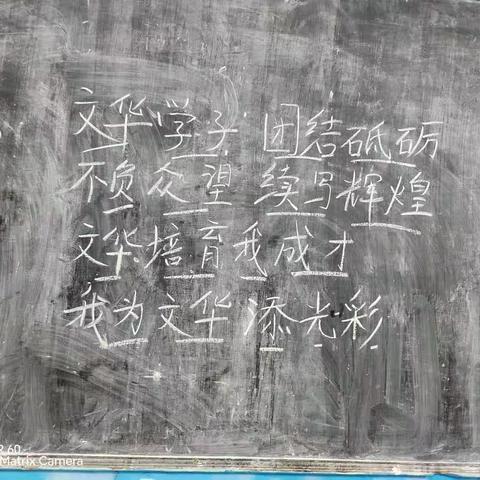 文华学子 团结砥砺
不负众望 续写辉煌
文华培育我成才
我为文华添光彩
60
Matrix Camera